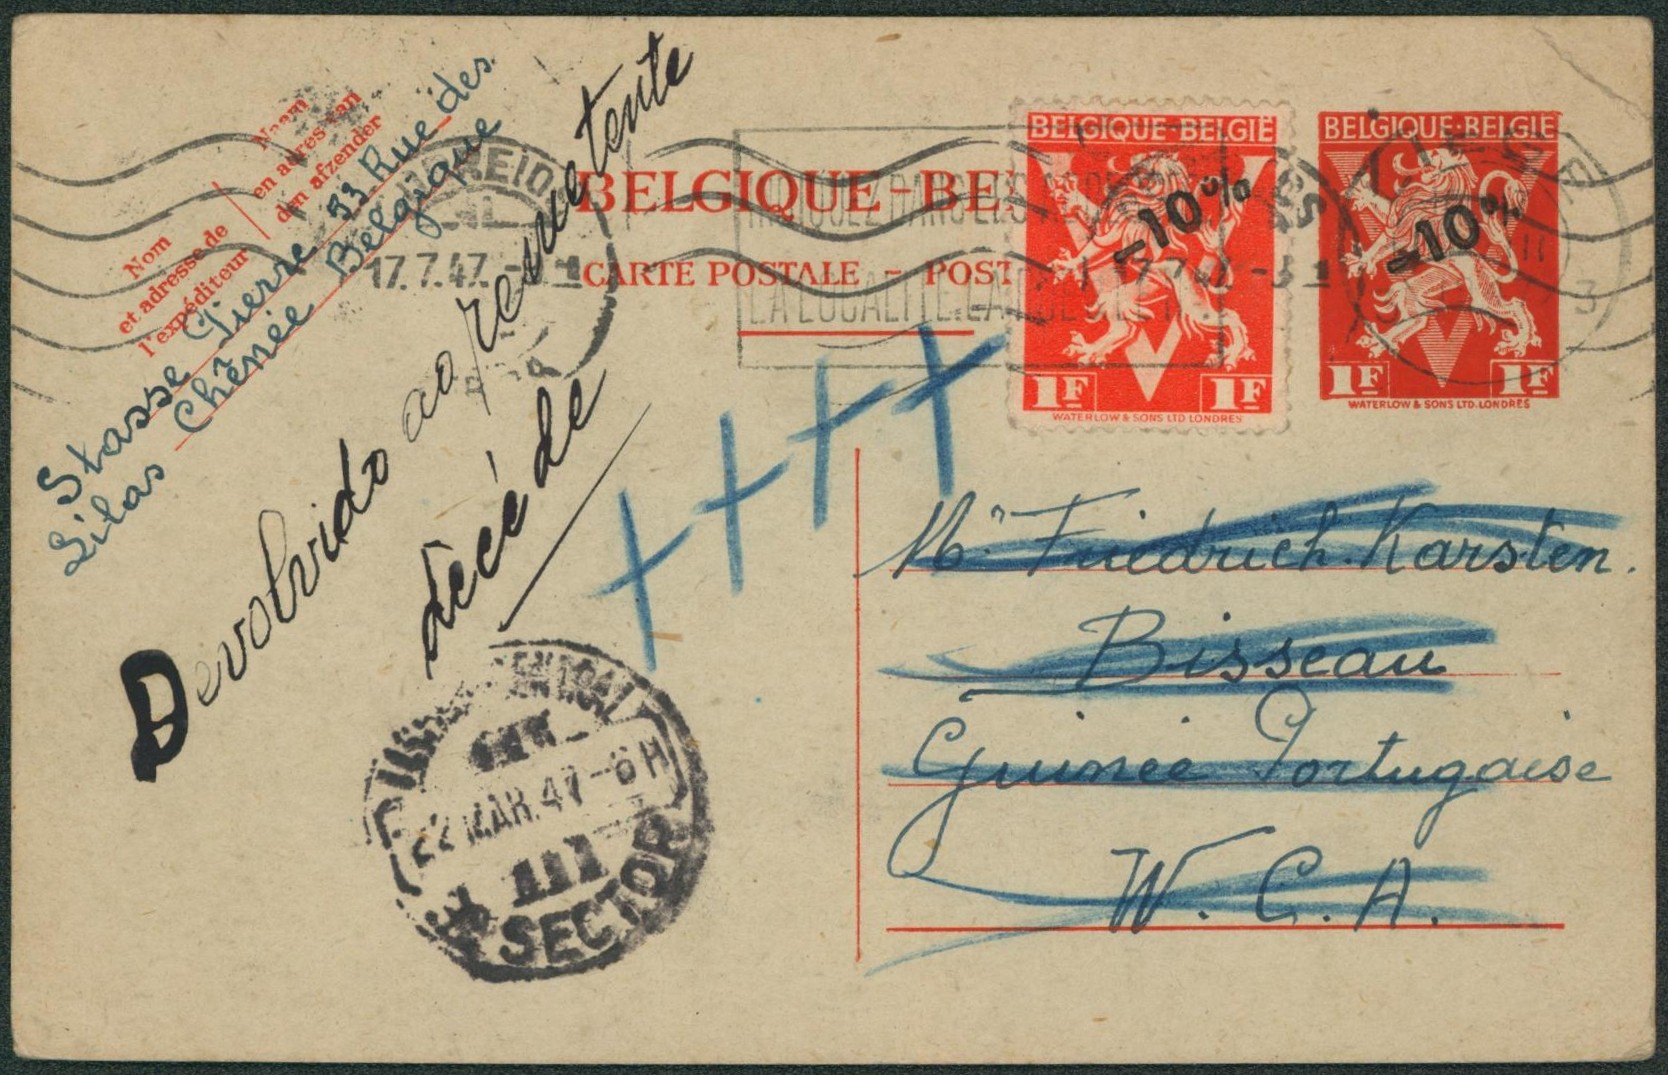 Nom
et adresse de
l'expéditeur
Naam
en adres van
den afzender
Stasse Pierre 53 Rue des
Lilas Chênée Belgique
BELGIQUE - BE
CARTE POSTALE - POST
17.7.47
BELGIQUE-BELGIË
-10%
1F 1F
WATERLOW & SONS LTD LONDRES
BELGIQUE-BELGIË
-10%
1F 1F
WATERLOW & SONS LTD. LONDRES
INDIQUEZ DANS
LA LOCALITE
17.7.47
Devolvido ao remetente
décédé
Mr Friedrich Karsten.
Bisseau
Guinée Portugaise
W. C. A.
CENTRAL
22 MAR. 47-6H
III
SECTOR